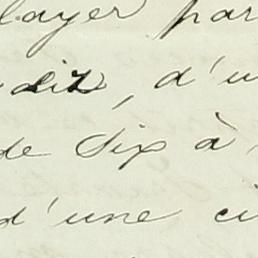 layer par
dix, d'u
de Six à
d'une ci